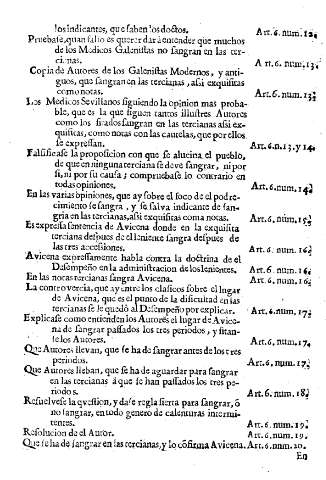 los indicantes, que saben los doctos. Art. 6. num. 12.
Pruebase, quan falso es querer dar à entender que muchos
de los Medicos Galenistas no sangran en las ter-
cianas. Art. 6. num. 13.
Copia de Autores de los Galenistas Modernos, y anti-
guos, que sangran en las tercianas, assi exquisitas
como notas. Art. 6. num. 13.
Los Medicos Sevillanos siguiendo la opinion mas proba-
ble, que es la que siguen tantos illustres Autores
como los sitados sangran en las tercianas assi ex-
quisitas, como notas con las cautelas, que por ellos
se expressan. Art. 6. n. 13. y 14.
Falsificase la proposicion con que se alucina el pueblo,
de que en ninguna terciana se deve sangrar, ni por
si, ni por su causa; compruebase lo contrario en
todas opiniones. Art. 6. num. 14.
En las varias opiniones, que ay sobre el foco de el pod re-
cimiento se sangra, y se salva indicante de san-
gria en las tercianas, assi exquisitas como notas. Art. 6. num. 15.
Es expressa sentencia de Avicena donde en la exquisita
terciana despues de el leniente sangra despues de
las tres accessiones. Art. 6. num. 16.
Avicena expressamente habla contra la doctrina de el
Desempeño en la administracion de os lenientes. Art. 6. num. 16.
En las notas tercianas sangra Avicena. Art. 6. num. 16.
La controvercia, que ay entre los clasicos sobre el lugar
de Avicena, que es el punto de la dificultad en las
tercianas se le quedò al Desempeño por explicar. Art. 6. num. 17.
Explicase como entienden los Autores el lugar de Avice-
na de sangrar passados los tres periodos, y sitan-
se los Autores. Art. 6. num. 17.
Que Autores llevan, que se ha de sangrar antes de los tres
periodos. Art. 6. num. 17.
Que Autores lleban, que se ha de aguardar para sangrar
en las tercianas à que se han passados los tres pe-
riodos. Art. 6. num. 18.
Resuelvese la question, y dase regla sierta para sangrar, ò
no sangrar, en todo genero de calenturas intermi-
tentes. Art. 6. num. 19.
Resolucion de el Autor. Art. 6. num. 19.
Que se ha de sangrar en las tercianas, y lo cõfirma Avicena. Art. 6. num. 20.
En